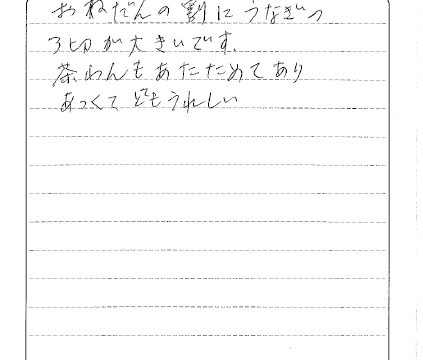 おねだんの割にうなぎっ
3切が大きいです.
茶わんもあたためてあり
あつくてとてもうれしい